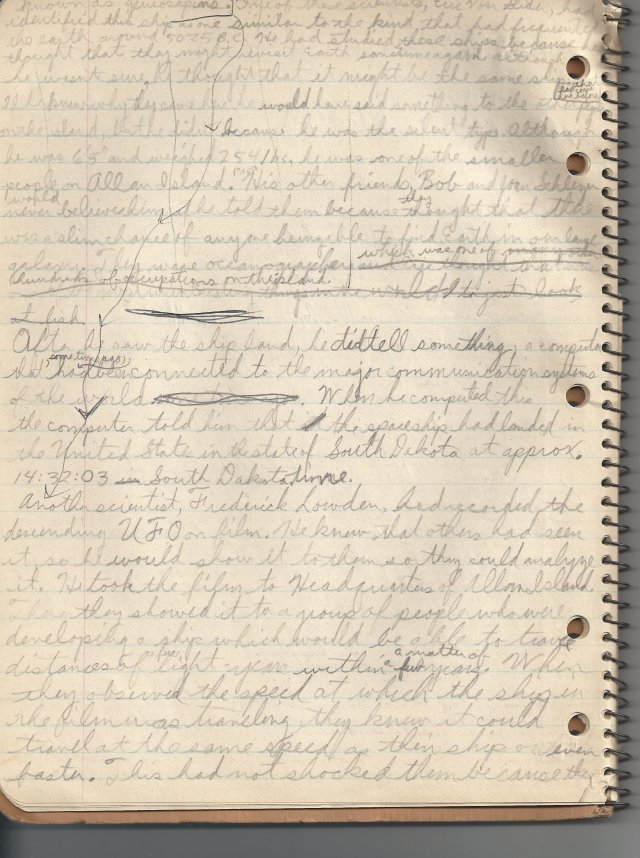 known as geniosapiens. One of these scientists, Eric Von
identified this ship as one similar to the kind that had frequented
the earth around 5025 B.C. He had studied these ships because he
thought that they might revisit Earth sometime again although
he wasn't sure, he thought that it might be the same ship
If he knew why they came here he would have said something to the
on the island, but he didn't because he was the silent type. Although
he was 6'5" and weighed 254 lbs. he was one of the smaller
people on Allan Island. His other friends, Bob and Schleyer
would
never believe him if he told them because they thought that there
was a slim chance of anyone being able to find Earth in our large
galaxy. They were oceanographers which was one of
hundreds of occupations on the island
to just look
at fish.
After he saw the ship land, he did tell something, a computer
that had sometime ago been connected to the major communication systems
of the world. When he computed this
the computer told him that the spaceship had landed in
the United State in the state of South Dakota at approx.
14:32:03 in South Dakota time.
Another scientist, Frederick Lowden, had recorded the
descending UFO on film. He knew that others had seen
it, so he would show it to them so they could analyze
it. He took the film to Headquarters of Allan Island.
There they showed it to a group of people who were
developing a ship which would be able to travel
a matter of
distances of light-years within a few years. When
they observed the speed at which the ship in
the film was traveling they knew it could
travel at the same speed as their ship or even
faster. This had not shocked them because they